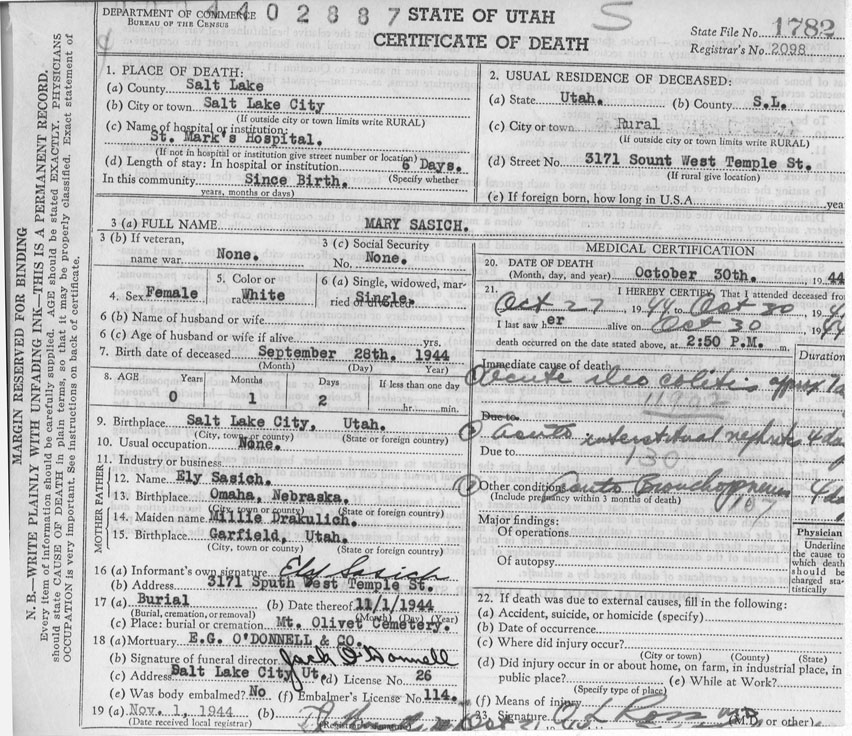 4402887
S
DEPARTMENT OF COMMERCE
BUREAU OF THE CENSUS
STATE OF UTAH
CERTIFICATE OF DEATH
State File No. 1782
Registrar's No. 2098
MARGIN RESERVED FOR BINDING
N. B.—WRITE PLAINLY WITH UNFADING INK—THIS IS A PERMANENT RECORD.
Every item of information should be carefully supplied. AGE should be stated EXACTLY. PHYSICIANS
should state CAUSE OF DEATH in plain terms, so that it may be properly classified. Exact statement of
OCCUPATION is very important. See instructions on back of certificate.
1. PLACE OF DEATH:
(a) County Salt Lake
(b) City or town Salt Lake City
(If outside city or town limits write RURAL)
(c) Name of hospital or institution:
St. Mark's Hospital.
(If not in hospital or institution give street number or location)
(d) Length of stay: In hospital or institution 6 Days.
(Specify whether
In this community Since Birth.
years, months or days)
2. USUAL RESIDENCE OF DECEASED:
(a) State Utah. (b) County S.L.
(c) City or town Rural
(If outside city or town limits write RURAL)
(d) Street No. 3171 Sount West Temple St.
(If rural give location)
(e) If foreign born, how long in U.S.A. years
3 (a) FULL NAME MARY SASICH.
3 (b) If veteran,
name war. None.
3 (c) Social Security
No. None.
4. Sex Female
5. Color or
race White
6 (a) Single, widowed, mar-
ried or divorced Single.
6 (b) Name of husband or wife
6 (c) Age of husband or wife if alive yrs.
7. Birth date of deceased September 28th. 1944
(Month) (Day) Year)
8. AGE Years Months Days If less than one day
0 1 2 hr. min.
9. Birthplace Salt Lake City, Utah.
(City, town or county) (State or foreign country)
10. Usual occupation None.
11. Industry or business
FATHER
12. Name Ely Sasich.
13. Birthplace Omaha, Nebraska.
(City, town or county) (State or foreign country)
MOTHER
14. Maiden name Millie Drakulich.
15. Birthplace Garfield, Utah.
(City, town or county) (State or foreign country)
16 (a) Informant's own signature Ely Sasich
(b) Address 3171 Sputh West Temple St.
17 (a) Burial (b) Date thereof 11/1/1944
(Burial, cremation, or removal) (Month) (Day) (Year)
(c) Place: burial or cremation Mt. Olivet Cemetery.
18 (a) Mortuary E.G. O'DONNELL & CO.
(b) Signature of funeral director Jack O'Donnell
(c) Address Salt Lake City Ut. (d) License No. 26
(e) Was body embalmed? No (f) Embalmer's License No. 114.
19 (a) Nov. 1, 1944 (b)
(Date received local registrar)
MEDICAL CERTIFICATION
20. DATE OF DEATH
(Month, day, and year) October 30th. , 1944
21. I HEREBY CERTIFY, That I attended deceased from
Oct 27 , 1944 to Oct 30 , 194
I last saw her alive on Oct 30 , 1944
death occurred on the date stated above, at 2:50 P.M. m.
Duration
Immediate cause of death
Acute ileo colitis approx
Due to
Acute interstitual nephritis 4 da
Due to
130
Other conditions Acute Bronchopneum 4 da
(Include pregnancy within 3 months of death)
107
Major findings:
Of operations
Of autopsy
Physician
Underline
the cause to
which death
should be
charged sta-
tistically
22. If death was due to external causes, fill in the following:
(a) Accident, suicide, or homicide (specify)
(b) Date of occurrence
(c) Where did injury occur?
(City or town) (County) (State)
(d) Did injury occur in or about home, on farm, in industrial place, in
public place? (e) While at Work?
(Specify type of place)
(f) Means of injury
23. Signature
(M.D. or other)